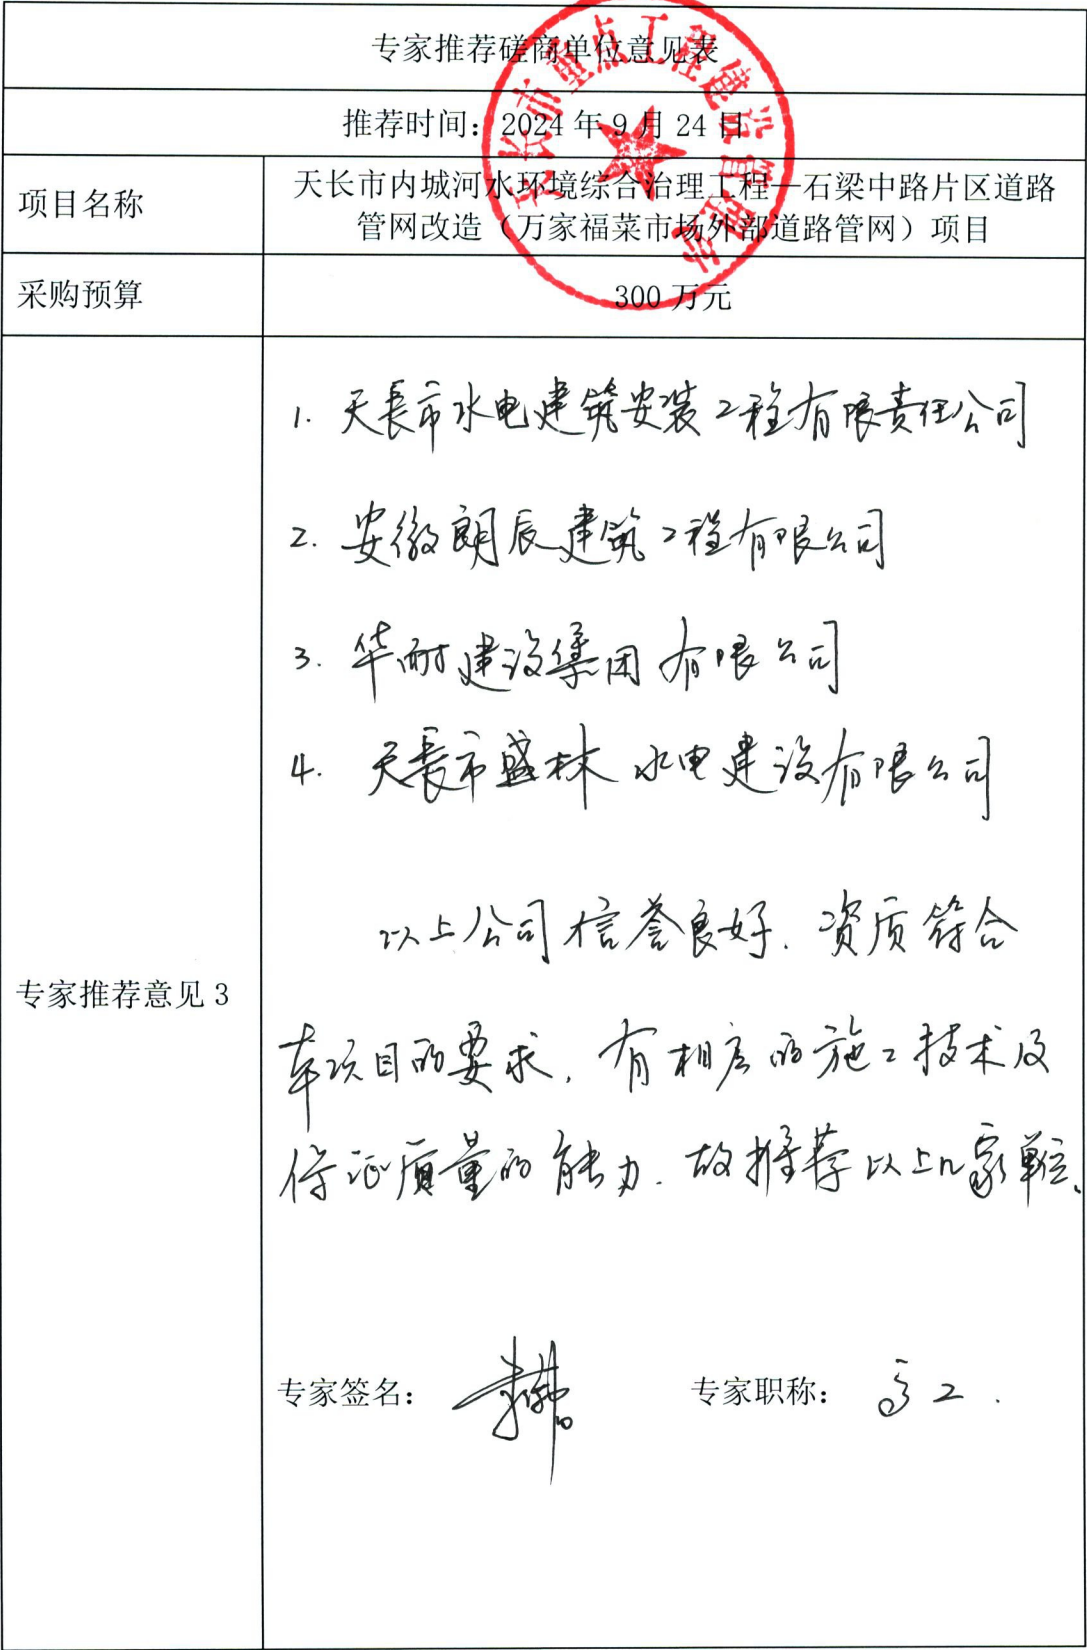 专家推荐磋商单位意见表
推荐时间：2024 年 9 月 24 日
项目名称
天长市内城河水环境综合治理工程—石梁中路片区道路
管网改造（万家福菜市场外部道路管网）项目
采购预算
300 万元
天长市重点工程建设管理处
1. 天長市水电建筑安装工程有限责任公司
2. 安徽朗辰建筑工程有限公司
3. 华耐建设集团有限公司
4. 天長市盛林水电建设有限公司
以上公司信誉良好．资质符合
专家推荐意见 3
本项目的要求．有相应的施工技术及
保证质量的能力．故推荐以上几家单位．
专家签名：
专家职称：高工．